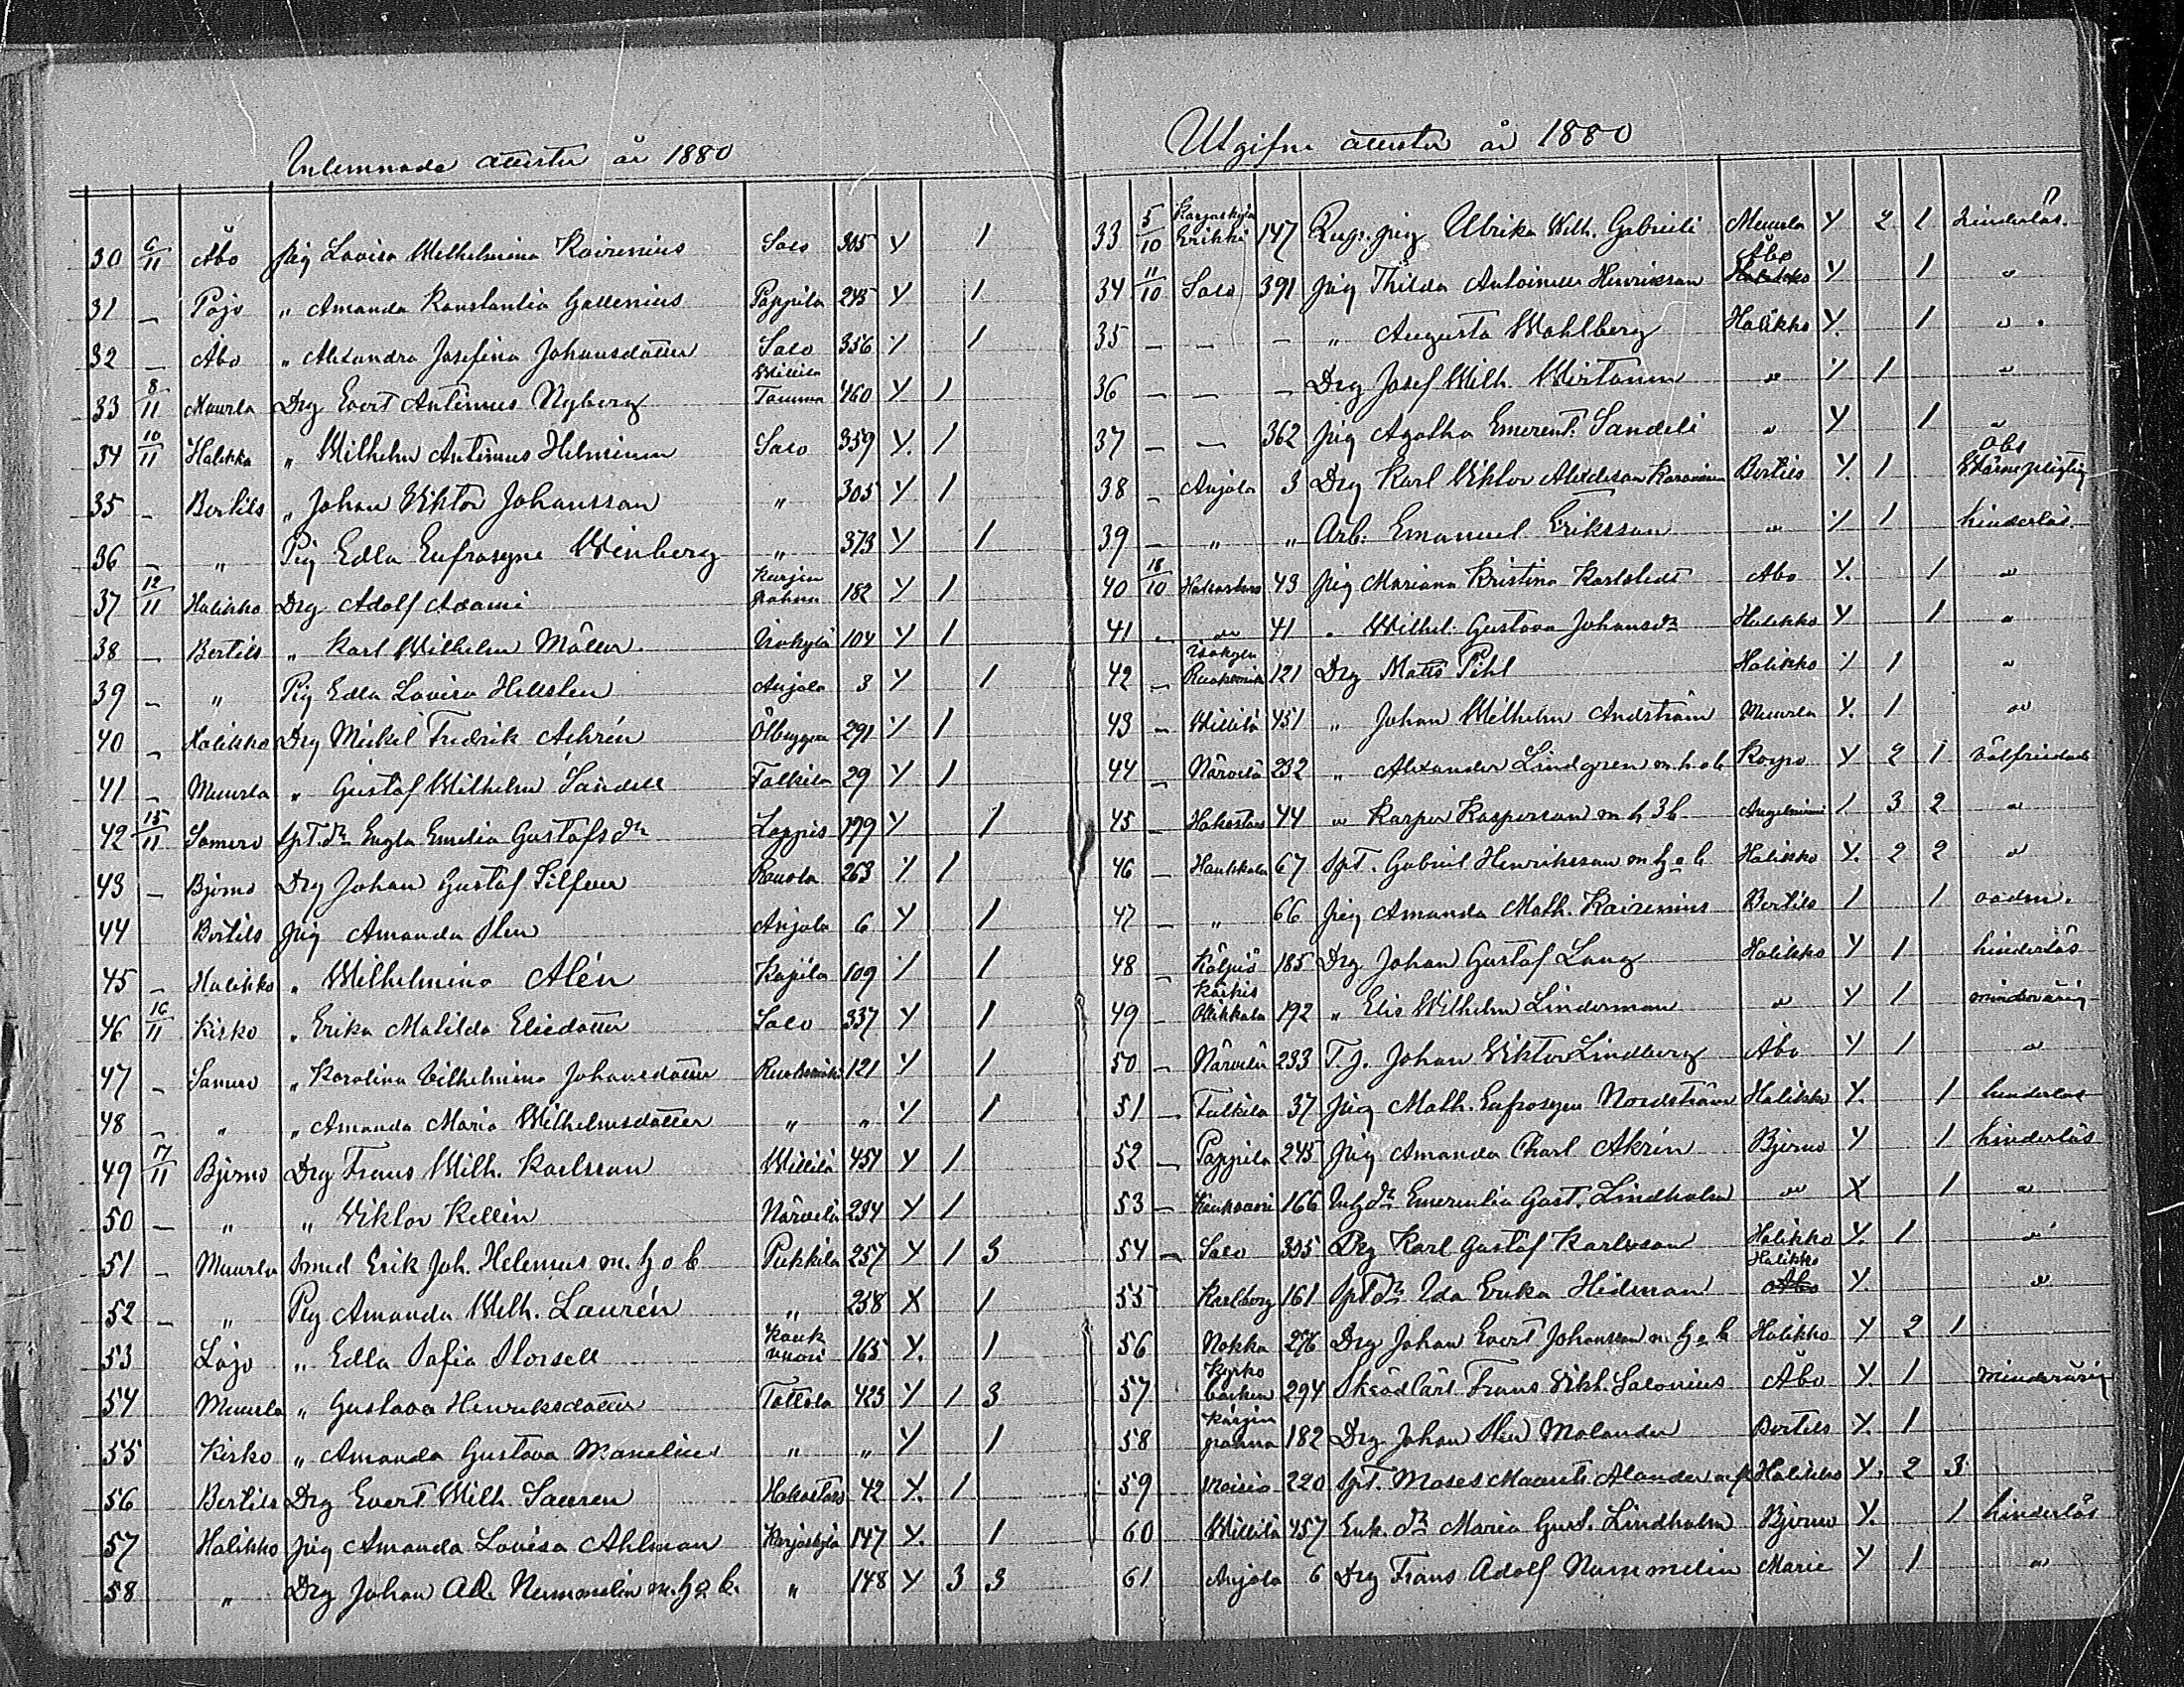 Inlemnade attester år 1880
30 6/11 Åbo Pig Lovisa Wilhelmina Kairenius Salo 305 Y 1
31 – Pojo " Amanda Konstantia Gallenius Pappila 245 Y 1
32 – Åbo " Alexandra Josefina Johansdotter Salo 356 Y 1
33 8/11 Muurla Drg Evert Antinus Nyberg Willilä Tamma 460 Y 1
34 10/11 Halikko " Wilhelm Antinus Helminen Salo 359 Y. 1
35 – Bertils " Johan Viktor Johansson " 305 Y 1
36 – " Pig Edla Eufrosyne Winberg " 373 Y 1
37 12/11 Halikko Drg Adolf Adami Kurjen pahna 182 Y 1
38 – Bertils " Karl Wilhelm Möller Isokylä 104 Y 1
39 – " Pig Edla Lovisa Hellsten Anjala 3 Y 1
40 – Halikko Drg Mickel Fredrik Achrén Ölbryggeri 291 Y 1
41 – Muurla " Gustaf Wilhelm Sandell Talkila 29 Y 1
42 15/11 Somero Spt. dr Engla Emilia Gustafsdr Lappis 199 Y 1
43 – Bjerno Drg Johan Gustaf Silfver Rauola 263 Y 1
44 Bertils Pig Amanda Sten Anjala 6 Y 1
45 – Halikko " Wilhelmina Alén Kajila 109 Y 1
46 16/11 Kisko " Erika Matilda Eliedotter Salo 337 Y 1
47 – Somero " Karolina Vilhelmina Johansdotter Ruokomäki 121 Y 1
48 – " " Amanda Maria Wilhelmsdotter " " Y 1
49 17/11 Bjerno Drg Frans Wilh. Karlsson Willilä 451 Y 1
50 – " " Viktor Kellén Närvelä 234 Y 1
51 – Muurla Smed Erik Joh. Helenius m. h o b Pukkila 257 Y 1 3
52 – " Pig Amanda Wilh. Laurén " 258 X 1
53 Lojo " Edla Sofia Norsell Kauk vuori 165 Y. 1
54 Muurla " Gustava Henriksdotter Tottola 423 Y 1 3
55 Kisko " Amanda Gustava Manelius " " Y 1
56 Bertils Drg Evert Wilh. Sauren Hakostaro 42 Y. 1
57 Halikko Pig Amanda Lovisa Ahlman Karjaskylä 147 Y. 1
58 " Drg Johan Ad. Nummelin m. h o b. " 148 Y 3 3
Utgifne attester år 1880
33 5/10 Karjaskylä Erikki 147 Pig Ulrika Wilh. Gabrieli Muurla Y 2 1 hinderlös.
34 11/10 Salo 391 Pig Thilda Antoinette Henriksson Åbo Halikko Y 1 "
35 – – – " Augusta Wahlberg Halikko Y. 1 " .
36 – – – Drg Josef Wilh. Wirtanen " Y 1 "
37 – – 362 Pig Agatha Emerent. Sandeli " Y 1 "
38 – Anjala 3 Drg Karl Viktor Alexisson Bertils Y. 1 Obs
39 – " " Arb. Emanuel Eriksson " Y 1 hinderlös
40 18/10 Hakostaro 43 Pig Mariana Kristina Karlstedt Åbo Y. 1 "
41 – " 41 " Wilhel. Gustava Johansdr Halikko Y 1 "
42 – Isokylä Ruokomäki 121 Drg Matts Pihl Halikko Y 1 "
43 – Willilä 451 " Johan Wilhelm Andström Muurla Y. 1 "
44 – Närvelä 232 " Alexander Lindgren m. h o b Koyro Y 2 1 välfrejdade
45 – Hakostaro 44 " Kasper Kaspersson m h 3 b Angelniemi 1 3 2 "
46 – Haukkala 67 Spt. Gabriel Henriksson m h o b Halikko Y. 2 2 "
47 – " 66 Pig Amanda Math. Kairenius Bertils 1 1 oadm.
48 – Kälpiö 185 Drg Johan Gustaf Lang Halikko Y 1 hinderlös
49 – Kärkis Wikkala 192 " Elis Wilhelm Linderman " Y 1 minderårig
50 – Närvelä 233 T. J. Johan Viktor Lindberg Åbo Y 1 "
51 – Talkila 37 Pig Math. Eufrosyne Nordström Halikko Y. 1 hinderlös
52 – Pappila 245 Pig Amanda Charl Akrén Bjerno Y 1 hinderlös
53 – Kaukvuori 166 Inh dr Emerentia Gust. Lindholm " X 1 "
54 – Salo 305 Drg Karl Gustaf Karlsson Halikko Y. 1 "
55 Karlborg 161 Spt dr Ida Erika Hedman Halikko Åbo Y. "
56 Nokka 276 Drg Johan Evert Johansson m. h o b Halikko Y 2 1
57 Kyrko backen 294 Skrädlärl. Frans Vikt. Salonius Åbo Y. 1 minderårig
58 Kurjen pahna 182 Drg Johan Sten Molander Bertils Y. 1
59 Moisio 220 Spt. Moses Maurits Alander Halikko Y. 2 3
60 Willilä 457 Enk. dr Maria Gust. Lindholm Bjerno Y. 1 hinderlös
61 Anjala 6 Drg Frans Adolf Nummelin Marie Y 1 "